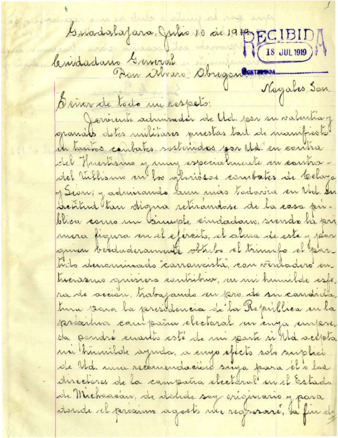 Guadalajara, Julio 10 de 1919.
RECIBIDA
18 JUL 1919
Ciudadano General
Don Alvaro Obregon
Nogales Son.
Señor de todo mi respeto:
Ferviente admirador de Ud. por su valentia y
grandes dotes militares puestas tan de manifiesto
en tantos combates sostenidos por Ud. en contra
del Huertismo y muy especialmente en contra
del Villismo en los gloriosos combates de Celaya
y Leon; y admirando aun mas todavia en Ud. su
actitud tan digna retirandose de la cosa pú-
blica como un simple ciudadano, siendo la pri-
mera figura en el ejército, el alma de este y por
quien berdaderamente obtubo el triunfo el Par-
tido denominado "carrancista", con verdadero en-
tusiasmo quisiera contribuir, en mi humilde esfe-
ra de acción, trabajando en pro de su candida-
tura para la presidencia de la República en la
próxima campaña electoral en cuya empre-
sa pondré cuanto esté de mi parte si Ud. acepta
mi humilde ayuda, a cuyo efecto solo suplico
de Ud. una recomendación suya para él o los
directores de la campaña electoral en el Estado
de Michoacán, de donde soy originario y para
donde el proximo agosto me regresaré, a fin de